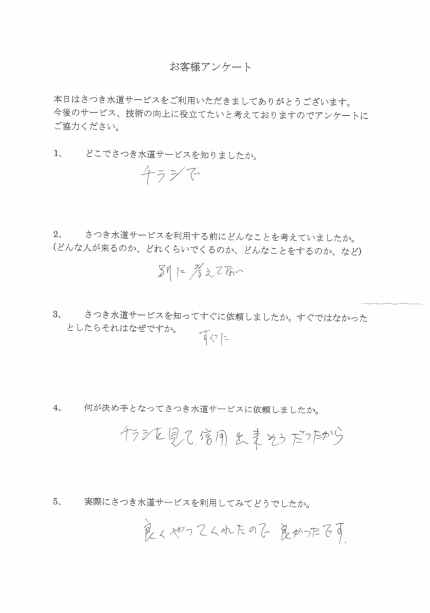 お客様アンケート
本日はさつき水道サービスをご利用いただきましてありがとうございます。
今後のサービス、技術の向上に役立てたいと考えておりますのでアンケートに
ご協力ください。
1、 どこでさつき水道サービスを知りましたか。
チラシで
2、 さつき水道サービスを利用する前にどんなことを考えていましたか。
(どんな人が来るのか、どれくらいでくるのか、どんなことをするのか、など)
別に考えてない
3、 さつき水道サービスを知ってすぐに依頼しましたか。すぐではなかった
としたらそれはなぜですか。
すぐに
4、 何が決め手となってさつき水道サービスに依頼しましたか。
チラシを見て、信用出来そうだったから
5、 実際にさつき水道サービスを利用してみてどうでしたか。
良くやってくれたので良かったです。